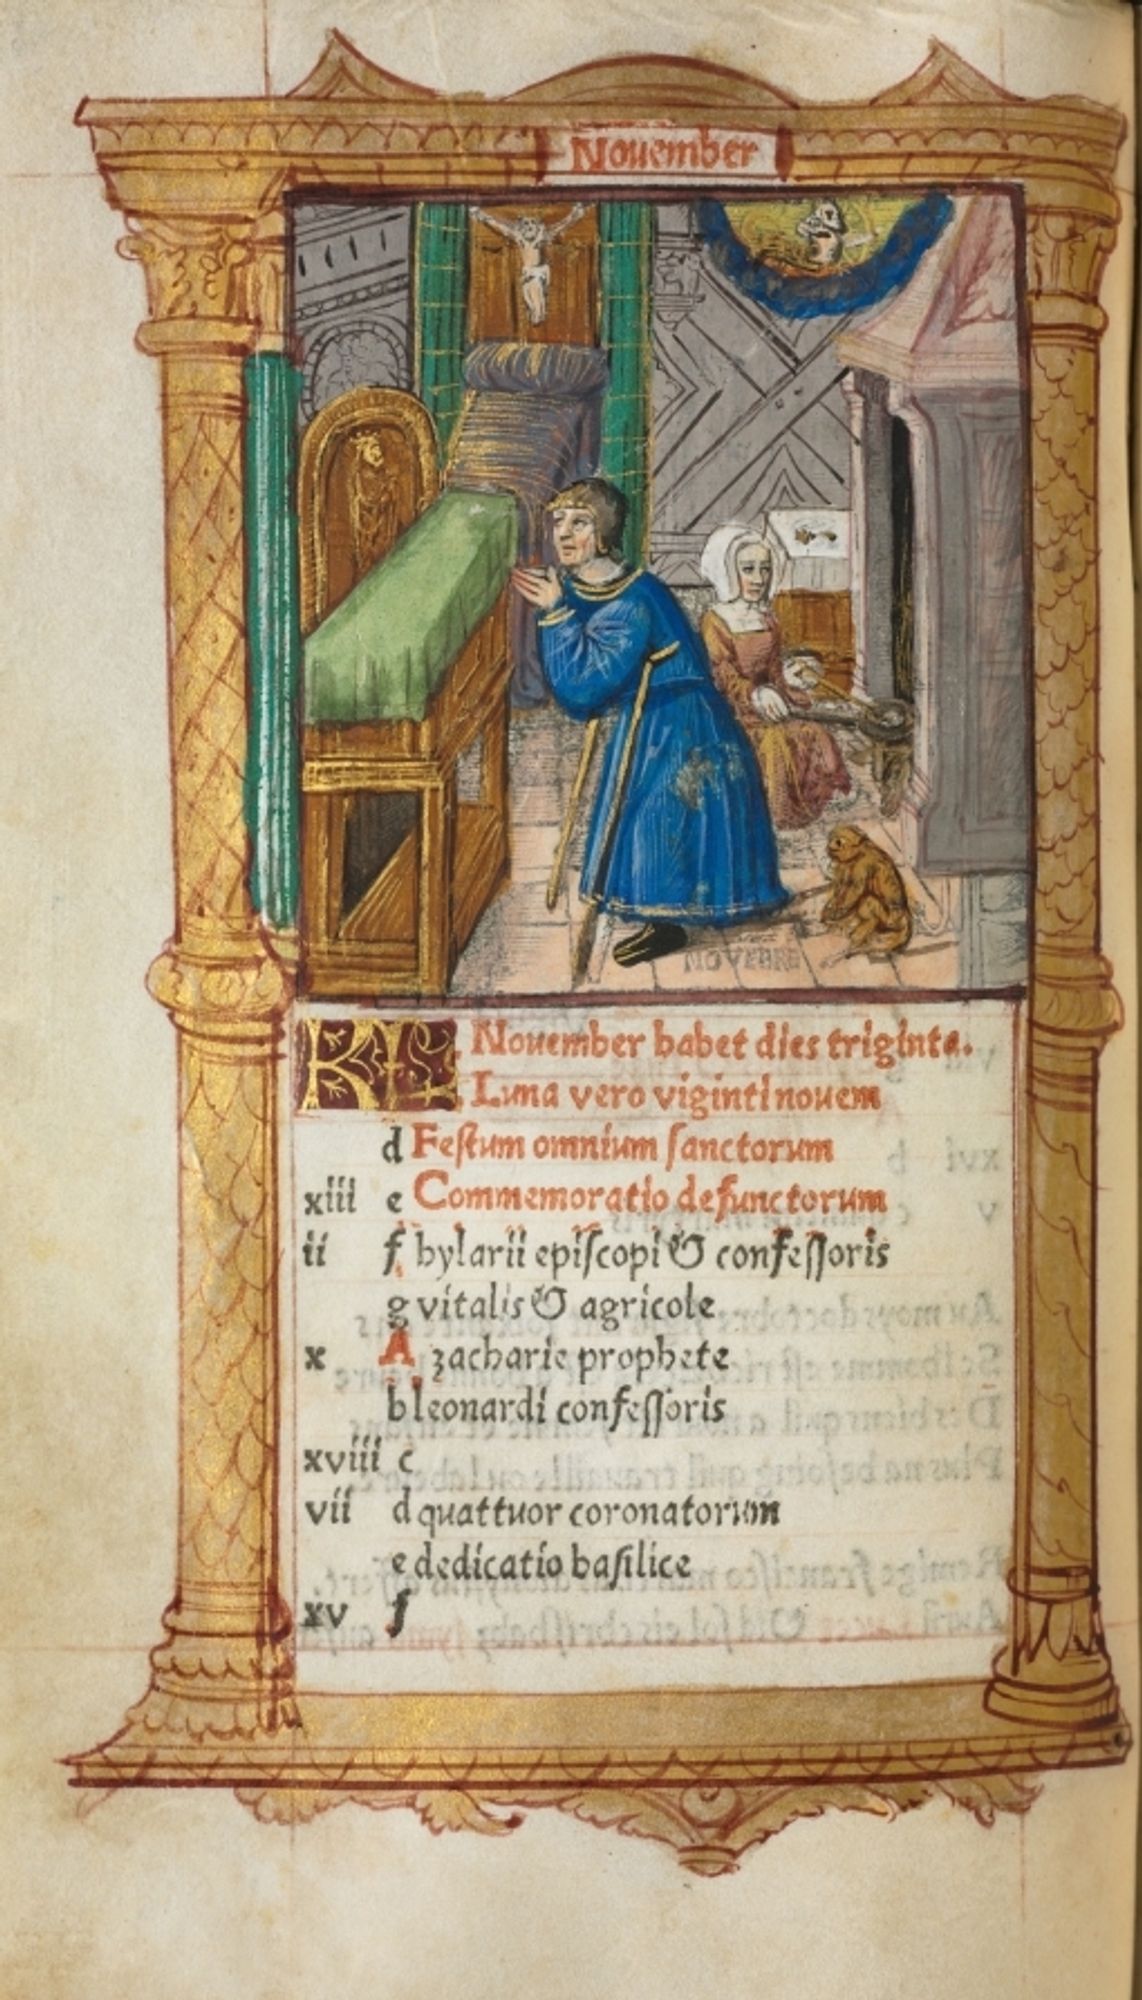 Nouember
NOVEBRE
KL. Nouember habet dies triginta.
Luna vero viginti nouem
d Feſtum omnium ſanctorum
xiii e Commemoratio defunctorum
ii f hylarii epiſcopi & confeſſoris
g vitalis & agricole
x A zacharie prophete
b leonardi confeſſoris
xviii c
vii d quattuor coronatorum
e dedicatio baſilice
xv f